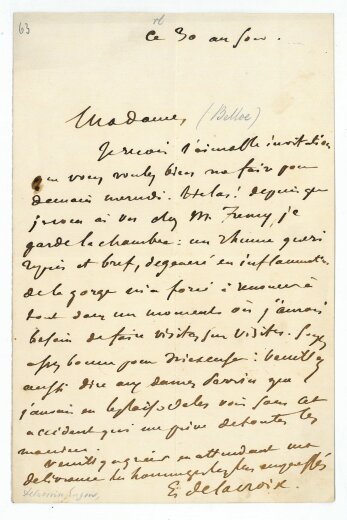 63
ce 30 au soir.
Madame, (Belloc)
Je reçois l'aimable invitation
que vous voulez bien me faire pour
demain mercredi. Hélas! depuis que
je vous ai vue chez M. , je
garde la chambre: un rhume guéri
repris et bref, dégénéré en inflammation
de la gorge m'a forcé à renoncer à
tout dans un moment où j'aurais
besoin de faire visites sur visites. Soyez
assez bonne pour m'excuser: veuillez
aussi dire aux dames que
j'aurais eu le plaisir de les voir sans cet
accident qui me prive de toutes les
manières.
Veuillez agréer en attendant ma
délivrance les hommages les plus empressés
E. Delacroix.